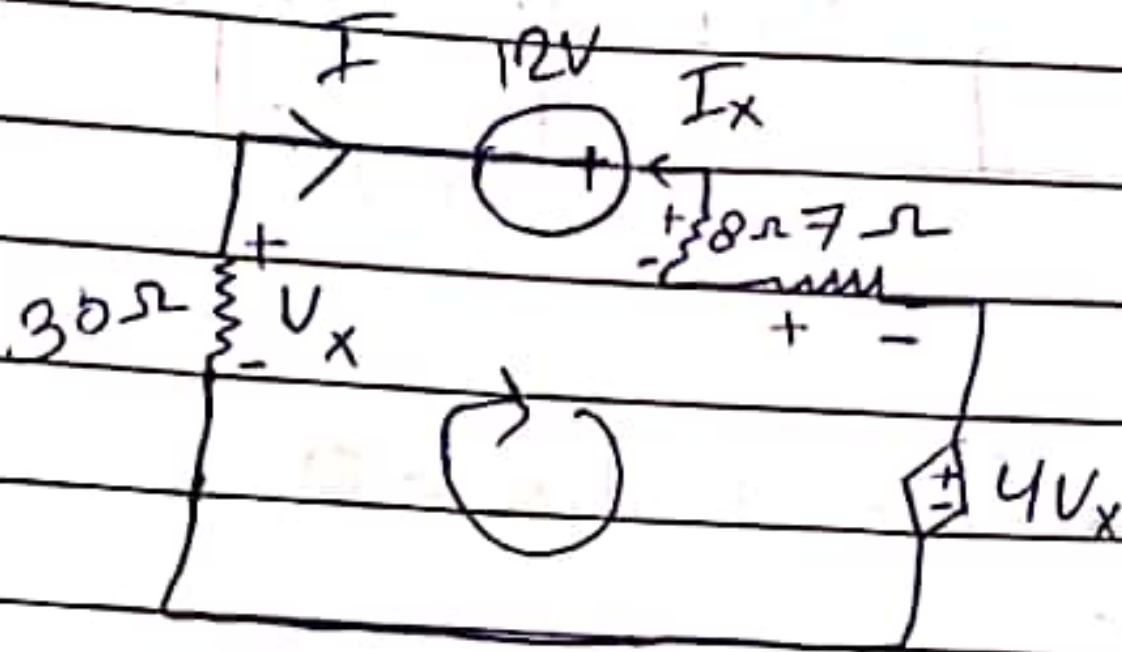 I 12V Ix
+
+ 8Ω 7Ω
-
30Ω Vx
+ -
-
+
- 4Vx